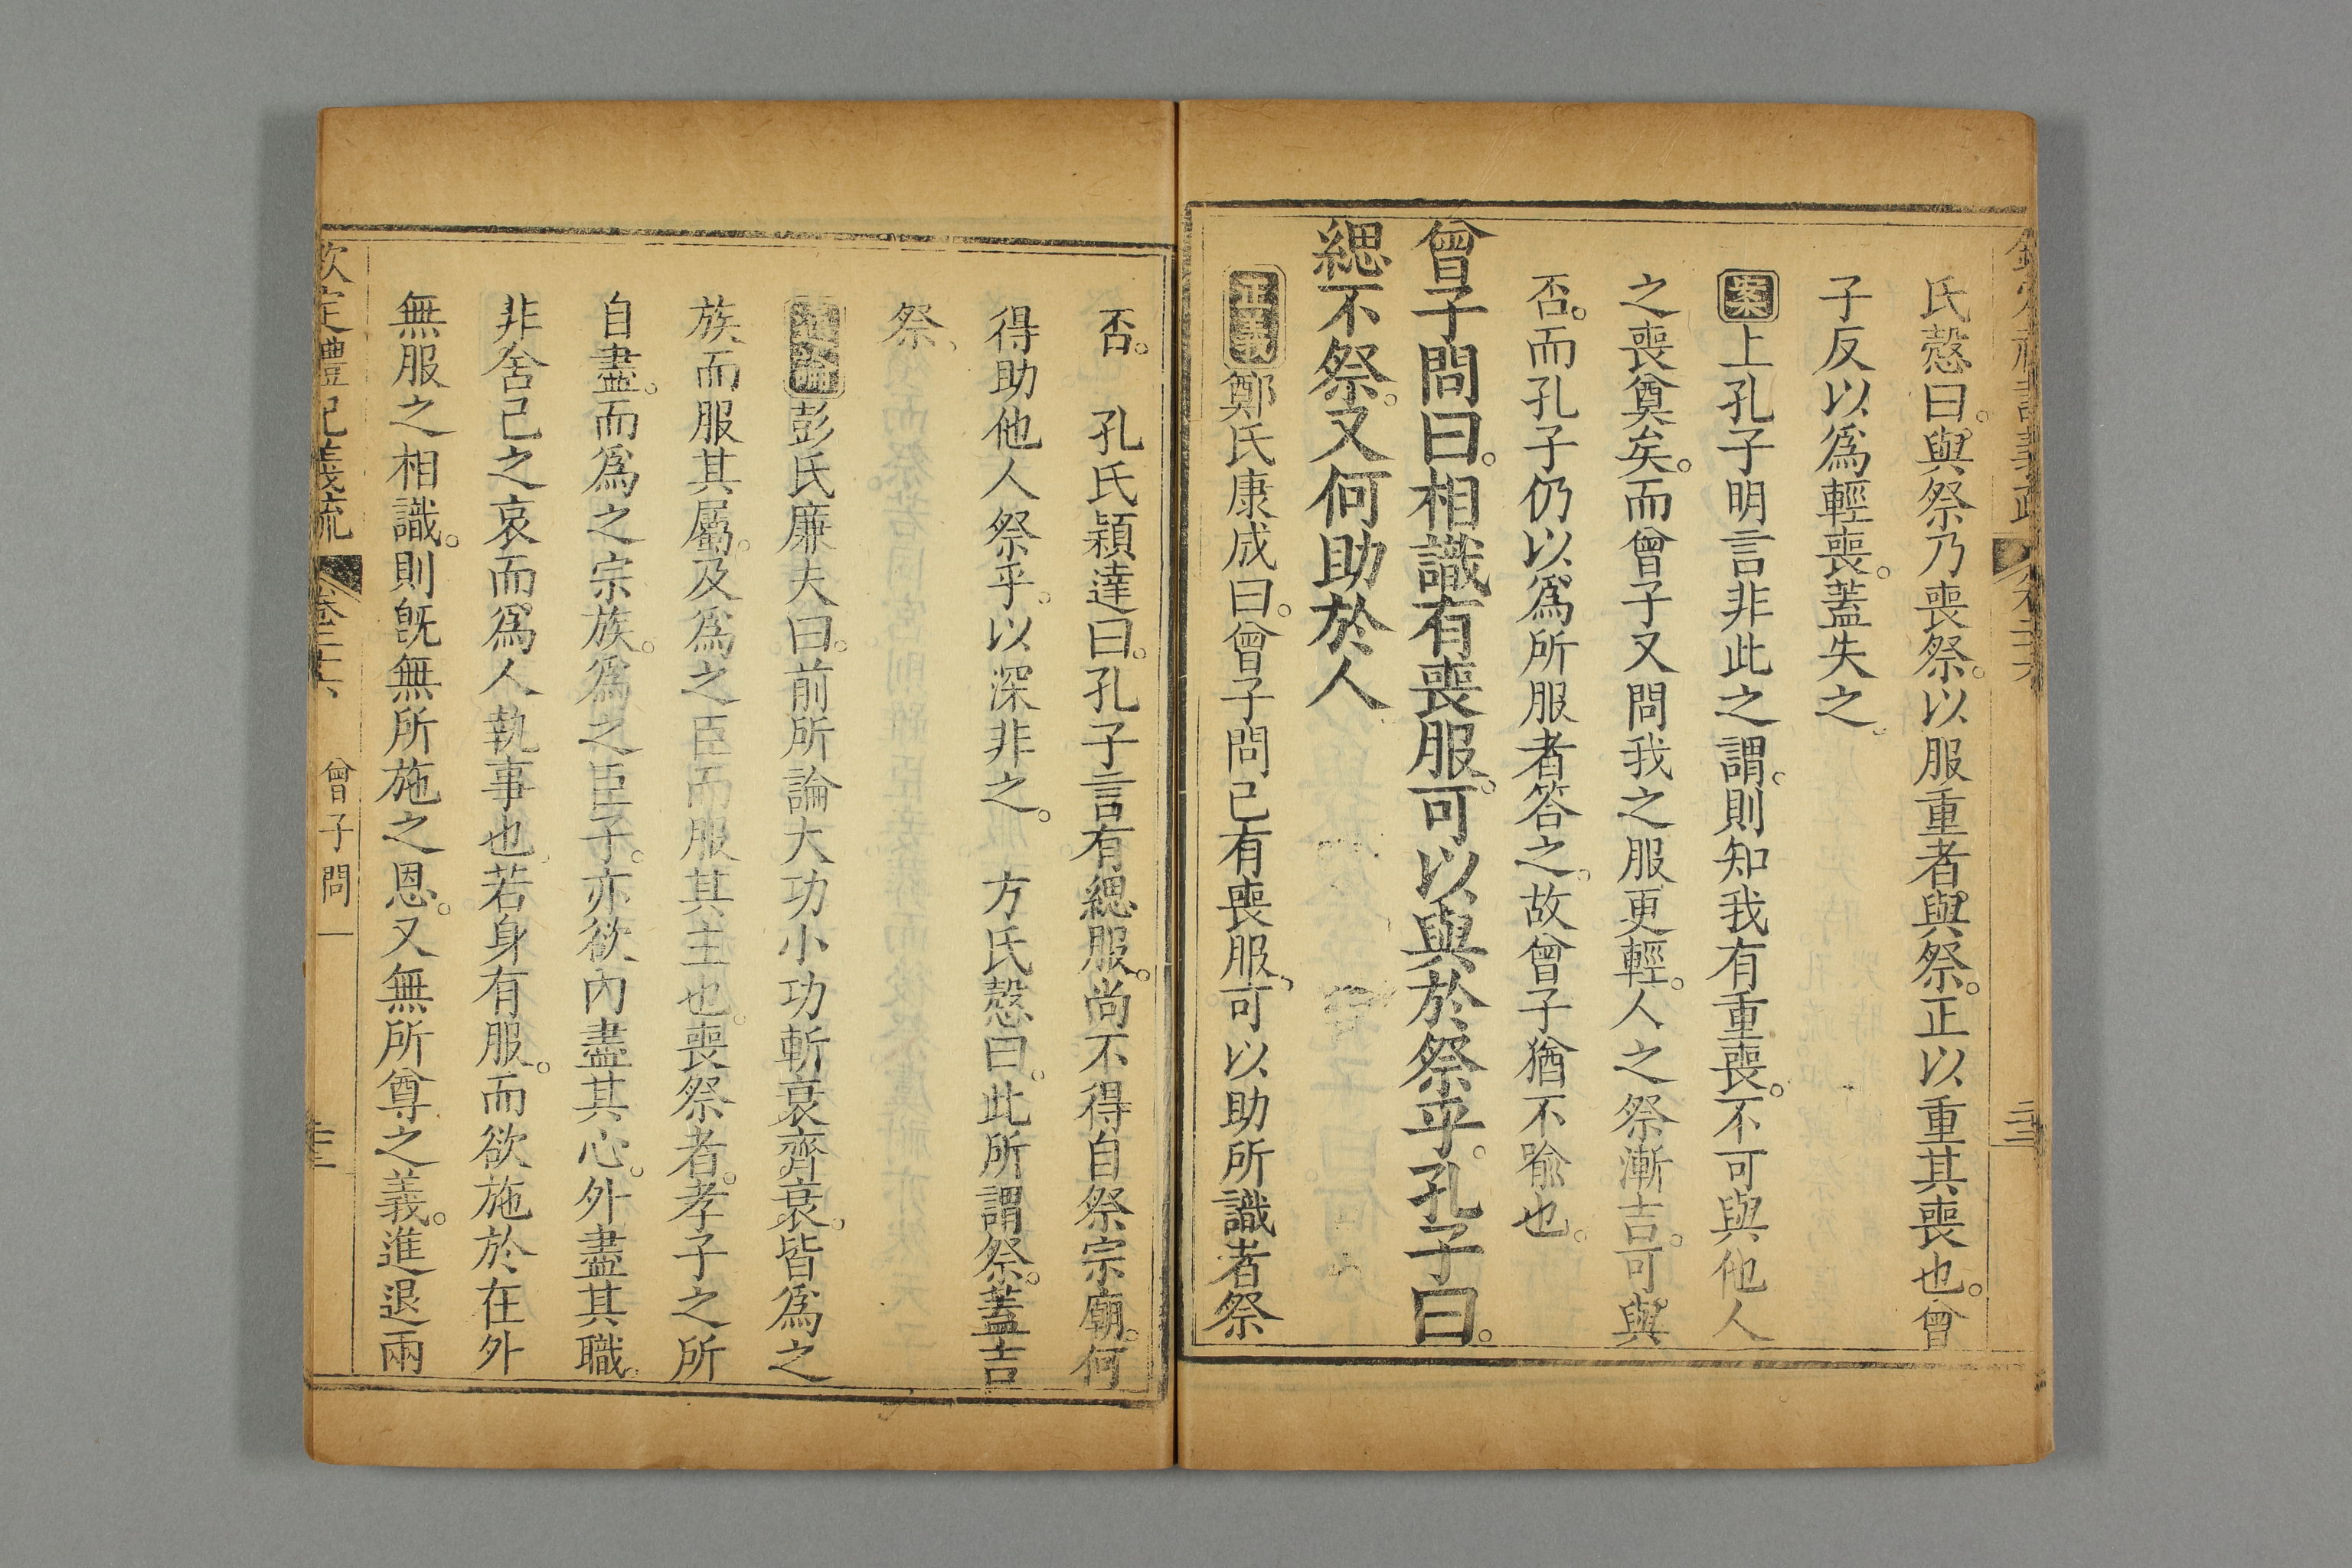 欽定禮記義疏 卷二十六 二十二
氏慤曰。與祭乃喪祭。以服重者與祭。正以重其喪也。曾
子反以爲輕喪。蓋失之。
案上孔子明言非此之謂。則知我有重喪。不可與他人
之喪奠矣。而曾子又問我之服更輕。人之祭漸吉。可與
否。而孔子仍以爲所服者答之。故曾子猶不喩也。
曾子問曰。相識有喪服。可以與於祭乎。孔子曰。
緦不祭。又何助於人
正義鄭氏康成曰。曾子問已有喪服。可以助所識者祭
否。 孔氏穎達曰。孔子言有緦服。尚不得自祭宗廟。何
得助他人祭乎。以深非之。 方氏慤曰。此所謂祭。蓋吉
祭、
通論彭氏廉夫曰。前所論大功小功斬衰齊衰。皆爲之
族而服其屬。及爲之臣而服其主也。喪祭者。孝子之所
自盡。而爲之宗族。爲之臣子。亦欲內盡其心。外盡其職。
非舍己之哀而爲人執事也。若身有服。而欲施於在外
無服之相識。則旣無所施之恩。又無所尊之義。進退兩
欽定禮記義疏 卷二十六 曾子問